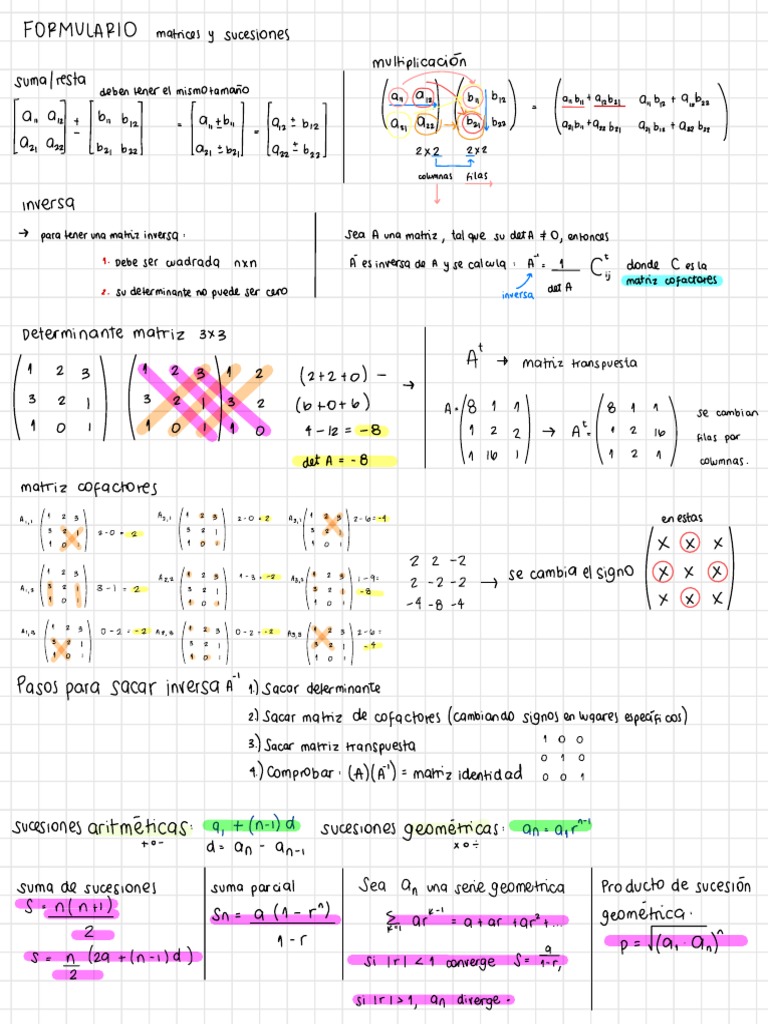 FORMULARIO matrices y sucesiones
suma/resta deben tener el mismo tamaño
[a₁₁ a₁₂ ± [b₁₁ b₁₂ = [a₁₁ ± b₁₁ = [a₁₂ ± b₁₂
a₂₁ a₂₂] b₂₁ b₂₂] a₂₁ ± b₂₁] a₂₂ ± b₂₂]
multiplicación
(a₁₁ a₁₂) (b₁₁ b₁₂) = (a₁₁b₁₁ + a₁₂b₂₁ a₁₁b₁₂ + a₁₂b₂₂)
(a₂₁ a₂₂) (b₂₁ b₂₂) (a₂₁b₁₁ + a₂₂b₂₁ a₂₁b₁₂ + a₂₂b₂₂)
2x2 2x2
columnas filas
inversa
→ para tener una matriz inversa:
1. Debe ser cuadrada nxn
2. su determinante no puede ser cero
Sea A una matriz, tal que su det A ≠ 0, entonces
A⁻ es inversa de A y se calcula: A⁻¹ = 1/det A Cᵢⱼᵗ donde C es la
matriz cofactores
inversa
Determinante matriz 3x3
1 2 3 1 2 3 1 2 (2+2+0) − →
3 2 1 3 2 1 3 2 (6+0+6)
1 0 1 1 0 1 1 0 4-12 = -8
det A = -8
Aᵗ → matriz transpuesta
A= 8 1 1 → Aᵗ= 8 1 1 se cambian
1 2 2 1 2 16 filas por
1 16 1 1 2 1 columnas.
matriz cofactores
A₁,₁ 1 2 3 2-0 = 2 A₂,₁ 1 2 3 2-0 = 2 A₃,₁ 1 2 3 2-6=-4
3 2 1 3 2 1 3 2 1
1 0 1 1 0 1 1 0 1
1 2 3 3-1 = 2 A₂,₂ 1 2 3 1-3=-2 1 2 3 1-9=
3 2 1 3 2 1 3 2 1 -8
1 0 1 1 0 1 1 0 1
1 2 3 0-2=-2 1 2 3 0-2=-2 1 2 3 2-6=
3 2 1 3 2 1 3 2 1 -4
1 0 1 1 0 1 1 0 1
2 2 -2
2 -2 -2 → se cambia el signo
-4 -8 -4
en estas
x x x
x x x
x x x
Pasos para sacar inversa A⁻¹ 1.) Sacar determinante
2.) Sacar matriz de cofactores (cambiando signos en lugares específicos)
3.) Sacar matriz transpuesta
4.) Comprobar: (A)(A⁻¹) = matriz identidad
1 0 0
0 1 0
0 0 1
sucesiones aritméticas: a₁ + (n-1)d
+ o -
d = aₙ - aₙ₋₁
sucesiones geométricas: aₙ = a₁rⁿ⁻¹
x o ÷
suma de sucesiones
S = n(n+1)/2
S = n/2 (2a + (n-1)d)
suma parcial
Sn = a(1-rⁿ)/1-r
Sea aₙ una serie geometrica
Σ k=1 arᵏ⁻¹ = a + ar + ar² + ...
si |r| < 1 converge S = a/1-r,
si |r| > 1, aₙ diverge.
Producto de sucesión
geométrica.
p = √(a₁ · aₙ)ⁿ